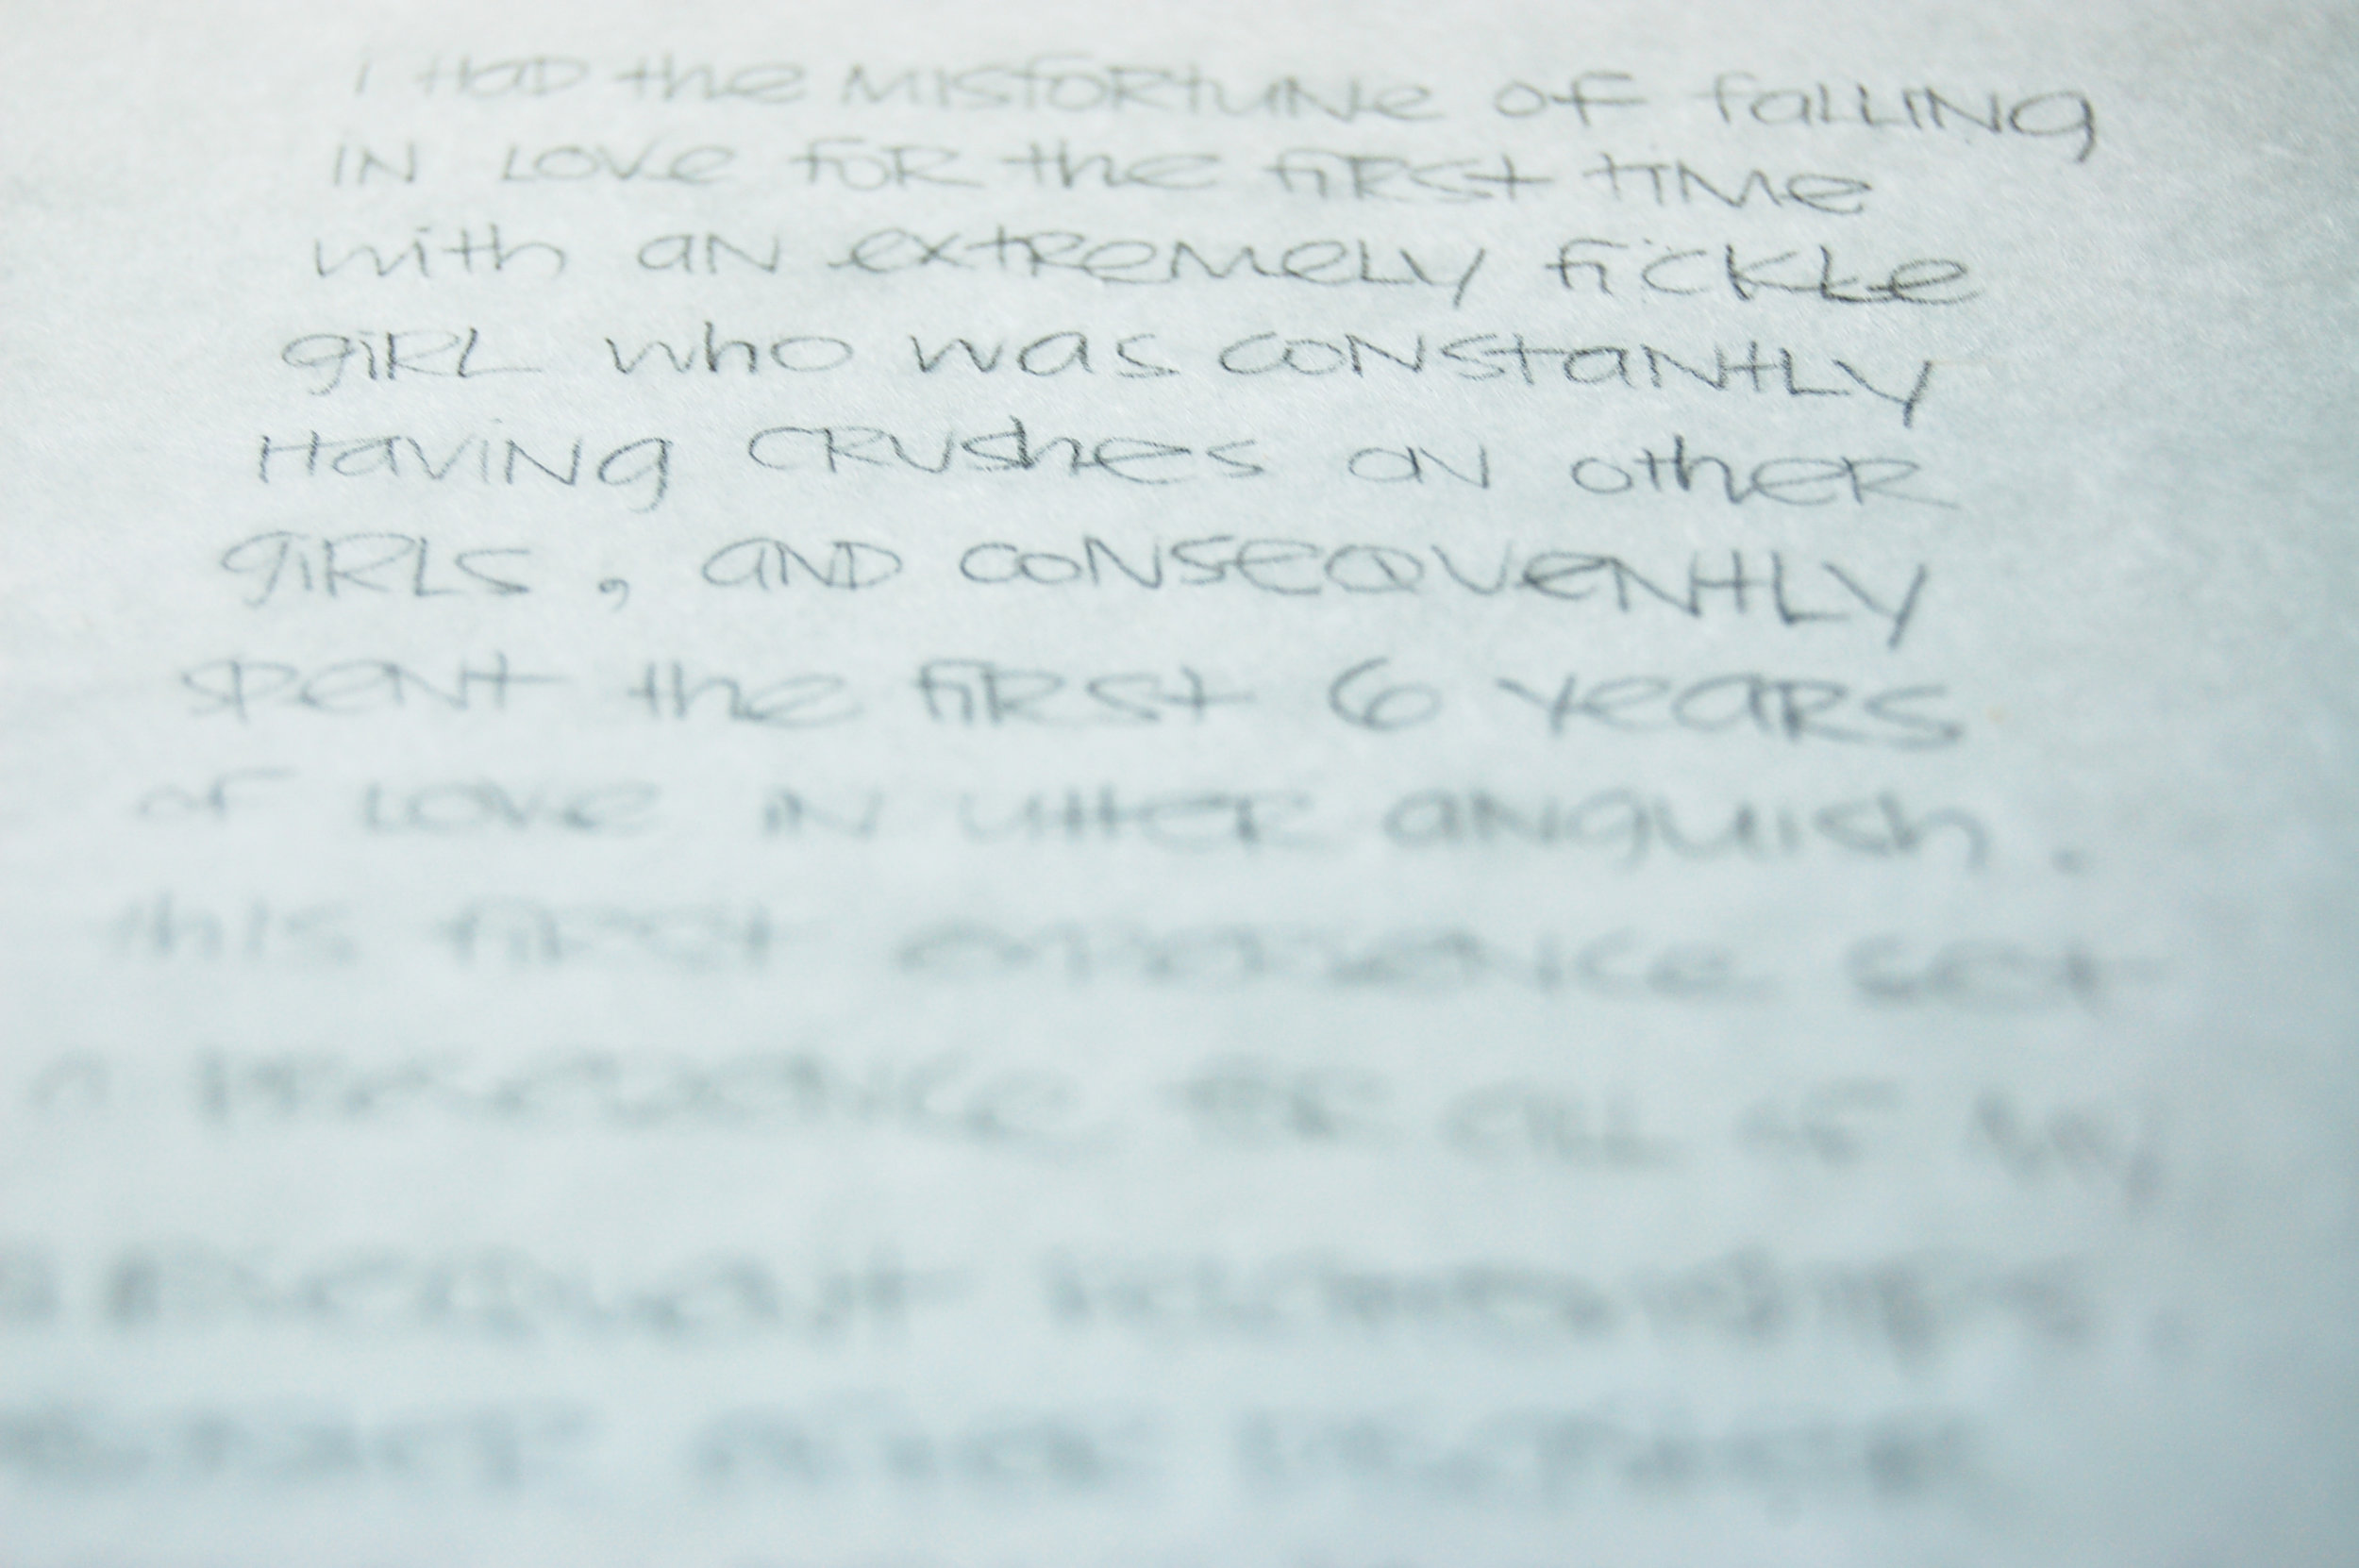 I HAD the MISFORTUNE of falling
IN LOVE FOR the first time
with an extremely fickle
girl who was constantly
Having crushes on other
girls, and consequently
spent the first 6 years
of love in utter anguish.
this first experience set
a for all of my
relationships